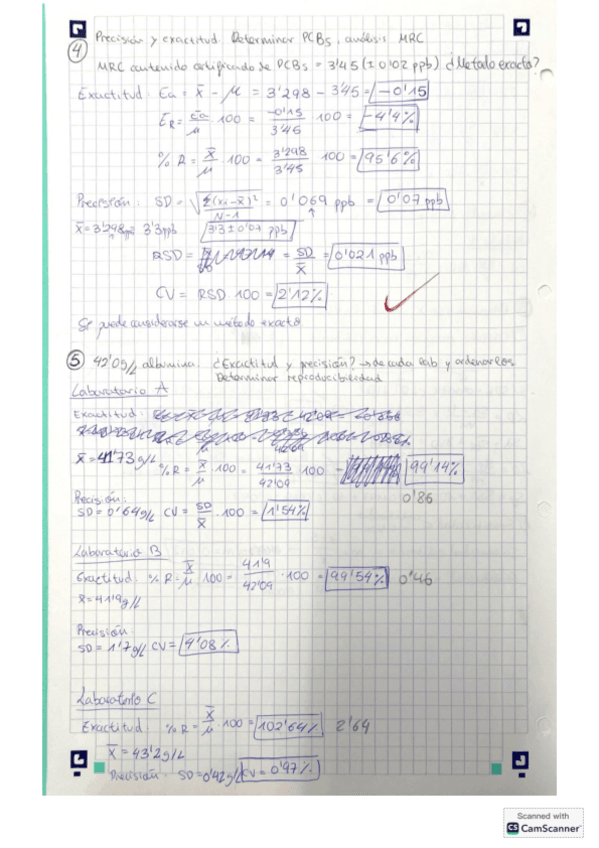 ④ Precisión y exactitud. Determinar PCBs, análisis MRC
MRC contenido certificado de PCBs = 3'45 (± 0'02 ppb) ¿Método exacto?
Exactitud. Ea = x̄ - μ = 3'298 - 3'45 = -0'15
ER = Ea/μ · 100 = -0'15/3'45 · 100 = -4'4%
% R = x̄/μ · 100 = 3'298/3'45 · 100 = 95'6%
Precisión. SD = √(Σ(xi-x̄)²/N-1) = 0'069 ppb = 0'07 ppb
x̄ = 3'298 ppb 3'3 ppb 3'3 ± 0'07 ppb
RSD = = SD/x̄ = 0'021 ppb
CV = RSD · 100 = 2'12%
Si puede considerarse un método exacto
⑤ 42'09 g/L albumina. ¿Exactitud y precisión? → de cada lab y ordenarlos
Determinar reproducibilidad
Laboratorio A
Exactitud.
x̄ = 41'73 g/L % R = x̄/μ · 100 = 41'73/42'09 · 100 = 99'14%
0'86
Precisión:
SD = 0'64 g/L CV = SD/x̄ · 100 = 1'54%
Laboratorio B
Exactitud. % R = x̄/μ · 100 = 41'9/42'09 · 100 = 99'54% 0'46
x̄ = 41'9 g/L
Precisión.
SD = 1'7 g/L CV = 4'08%
Laboratorio C
Exactitud. % R = x̄/μ · 100 = 102'64% 2'64
x̄ = 43'2 g/L
Precisión. SD = 0'42 g/L CV = 0'97%
Scanned with
CS CamScanner